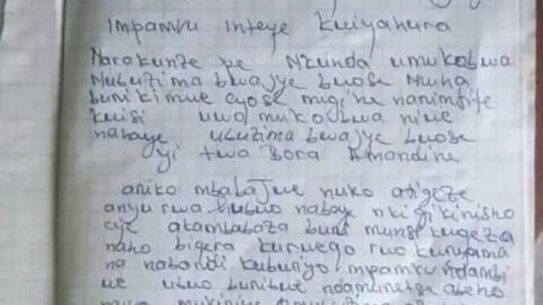 Impamvu inteye kwiyahura
Narakunze pe Nkunda umukobwa
Mubuzima bwajye bwose Muha
buri kimwe cyose mugihe narimfite
kwisi uwo mukobwa niwe
nahaye ubuzima bwajye bwose
yitwa Bora Amandine
ariko mbabajwe nuko atigeze
anyurwa nubwo nabaye nkigikinisho
cye akambabaza buri munsi kugeza
naho bigera kurwego rwo kuryama
na nabandi kubwiyo mpamvu ndambi
we ubwo bunibwe ndamunetse abeho